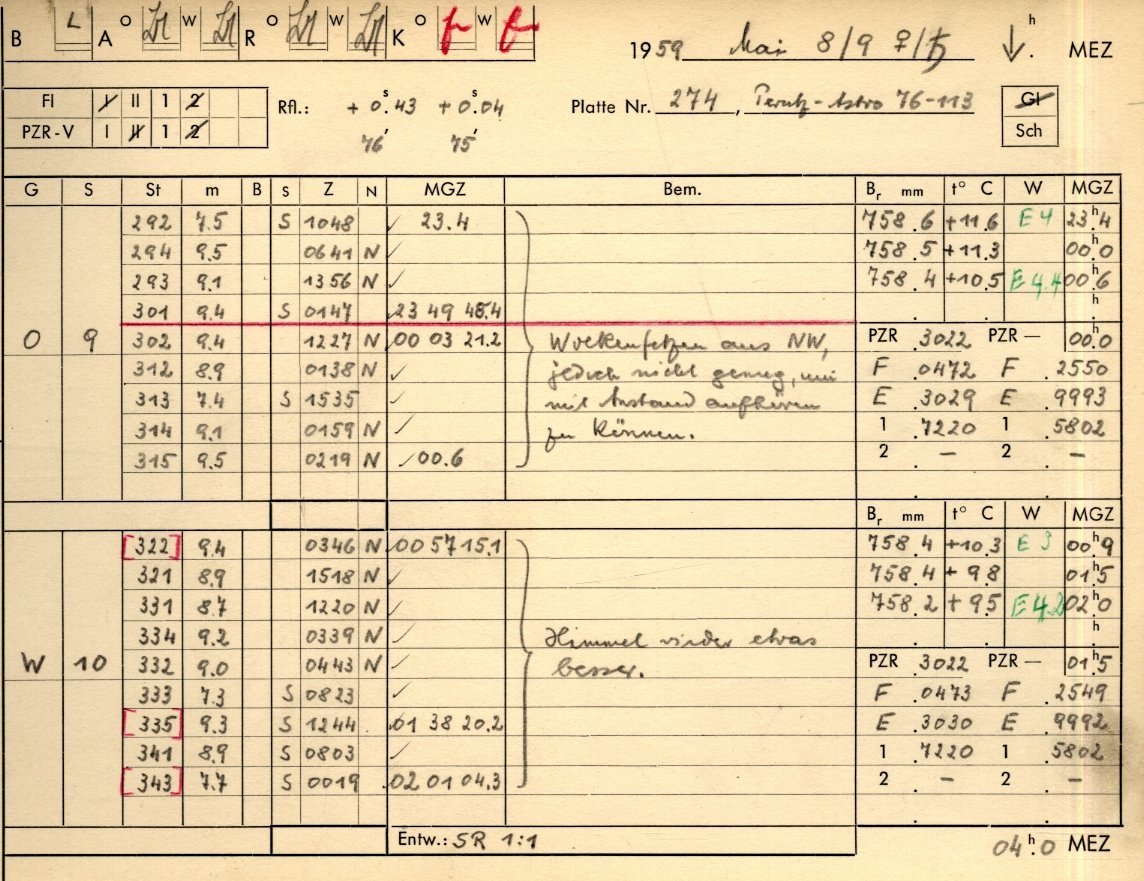 B L A O W R O W K O W
1959 Mai 8/9 ♀/♄ ↓ h. MEZ
FI I II 1 2 Rfl.: + 0.s43 + 0.s04 Platte Nr. 274, Perutz-Astro 76-113 GI
PZR-V I II 1 2 76' 75' Sch
G S St m B S Z N MGZ Bem. Br mm t° C W MGZ
292 7.5 S 1048 ✓ 23.4 758.6 +11.6 E4 23h.4
294 9.5 0641 N ✓ 758.5 +11.3 00h.0
293 9.1 1356 N ✓ 758.4 +10.5 E4.4 00h.6
301 9.4 S 0147 23 49 48.4 h.
O 9 302 9.4 1227 N 00 03 21.2 Wolkenfetzen aus NW, PZR .3022 PZR — 00h.0
312 8.9 0138 N ✓ jedoch nicht genug, um F .0472 F .2550
313 7.4 S 1535 ✓ mit Anstand aufhören E .3029 E .9993
314 9.1 0159 N ✓ zu können. 1 .7220 1 .5802
315 9.5 0219 N ✓ 00.6 2 . — 2 . —
Br mm t° C W MGZ
[322] 9.4 0346 N 00 57 15.1 758.4 +10.3 E3 00h.9
321 8.9 1518 N ✓ 758.4 + 9.8 01h.5
331 8.7 1220 N ✓ 758.2 + 9.5 E4.2 02h.0
334 9.2 0339 N ✓ Himmel wieder etwas h.
W 10 332 9.0 0443 N ✓ besser. PZR .3022 PZR — 01h.5
333 7.3 S 0823 ✓ F .0473 F .2549
[335] 9.3 S 1244 01 38 20.2 E .3030 E .9992
341 8.9 S 0803 ✓ 1 .7220 1 .5802
[343] 7.7 S 0019 02 01 04.3 2 . — 2 . —
Entw.: SR 1:1 04h.0 MEZ